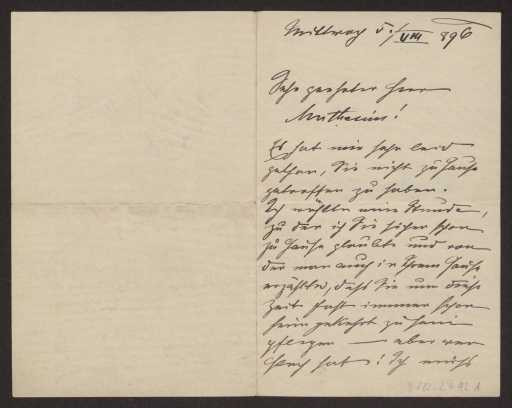 Mittwoch 5./VIII 896
Sehr geehrter Herr
Muthesius!
Es hat mir sehr leid
gethan, Sie nicht zu Hause
getroffen zu haben.
Ich wählte eine Stunde,
zu der ich Sie sicher schon
zu Hause glaubte und von
der man auch in Ihrem Hause
erzählte, daß Sie um diese
Zeit fast immer schon
heim gekehrt zu sein
pflegen — aber
hat! Ich muß